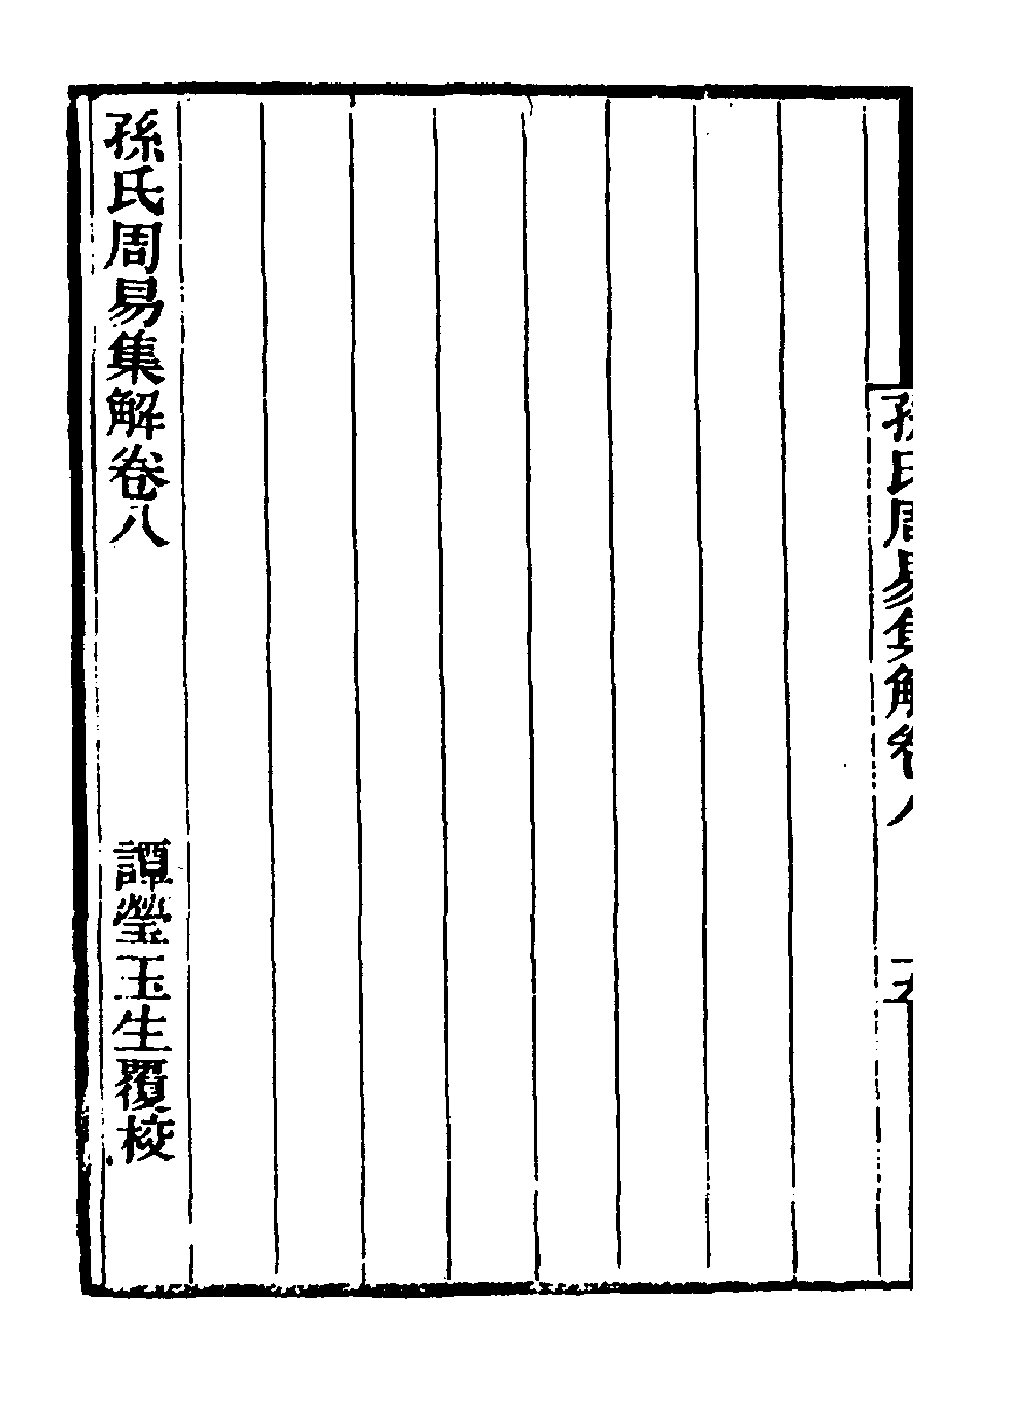 孫氏周易集解卷八
孫氏周易集解卷八
譚瑩玉生覆校